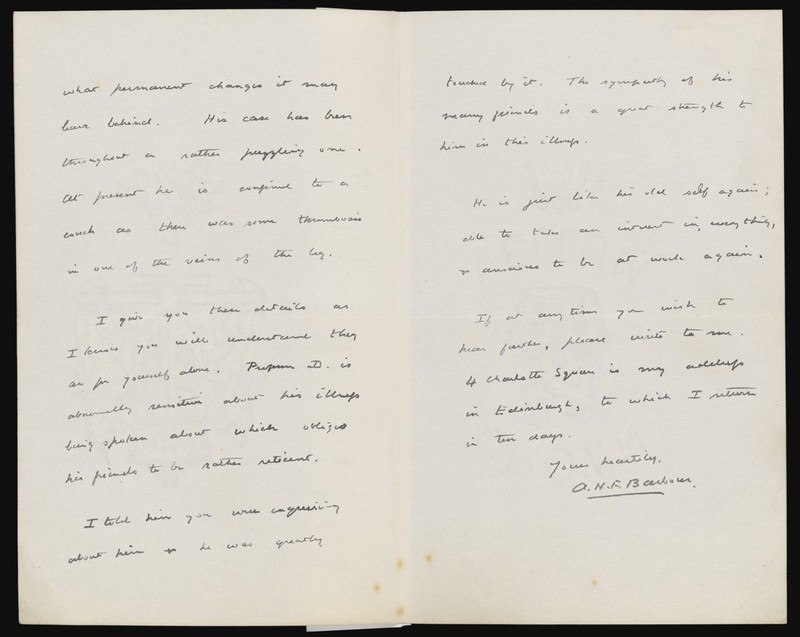 what permanent changes it may
leave behind. His case has been
throughout a rather puzzling one.
At present he is confined to a
couch as there was some thrombosis
in one of the veins of the leg.
I give you these details as
I know you will understand they
are for yourself alone. Professor D. is
abnormally sensitive about his illness
being spoken about which obliges
his friends to be rather reticent.
I told him you were enquiring
about him & he was greatly
touched by it. The sympathy of his
many friends is a great strength to
him in this illness.
He is just like his old self again;
able to take an interest in everything,
& anxious to be at work again.
If at any time you wish to
hear further, please write to me.
4 Charlotte Square is my address
in Edinburgh, to which I return
in ten days.
Yours heartily,
A.H.F. Barbour.